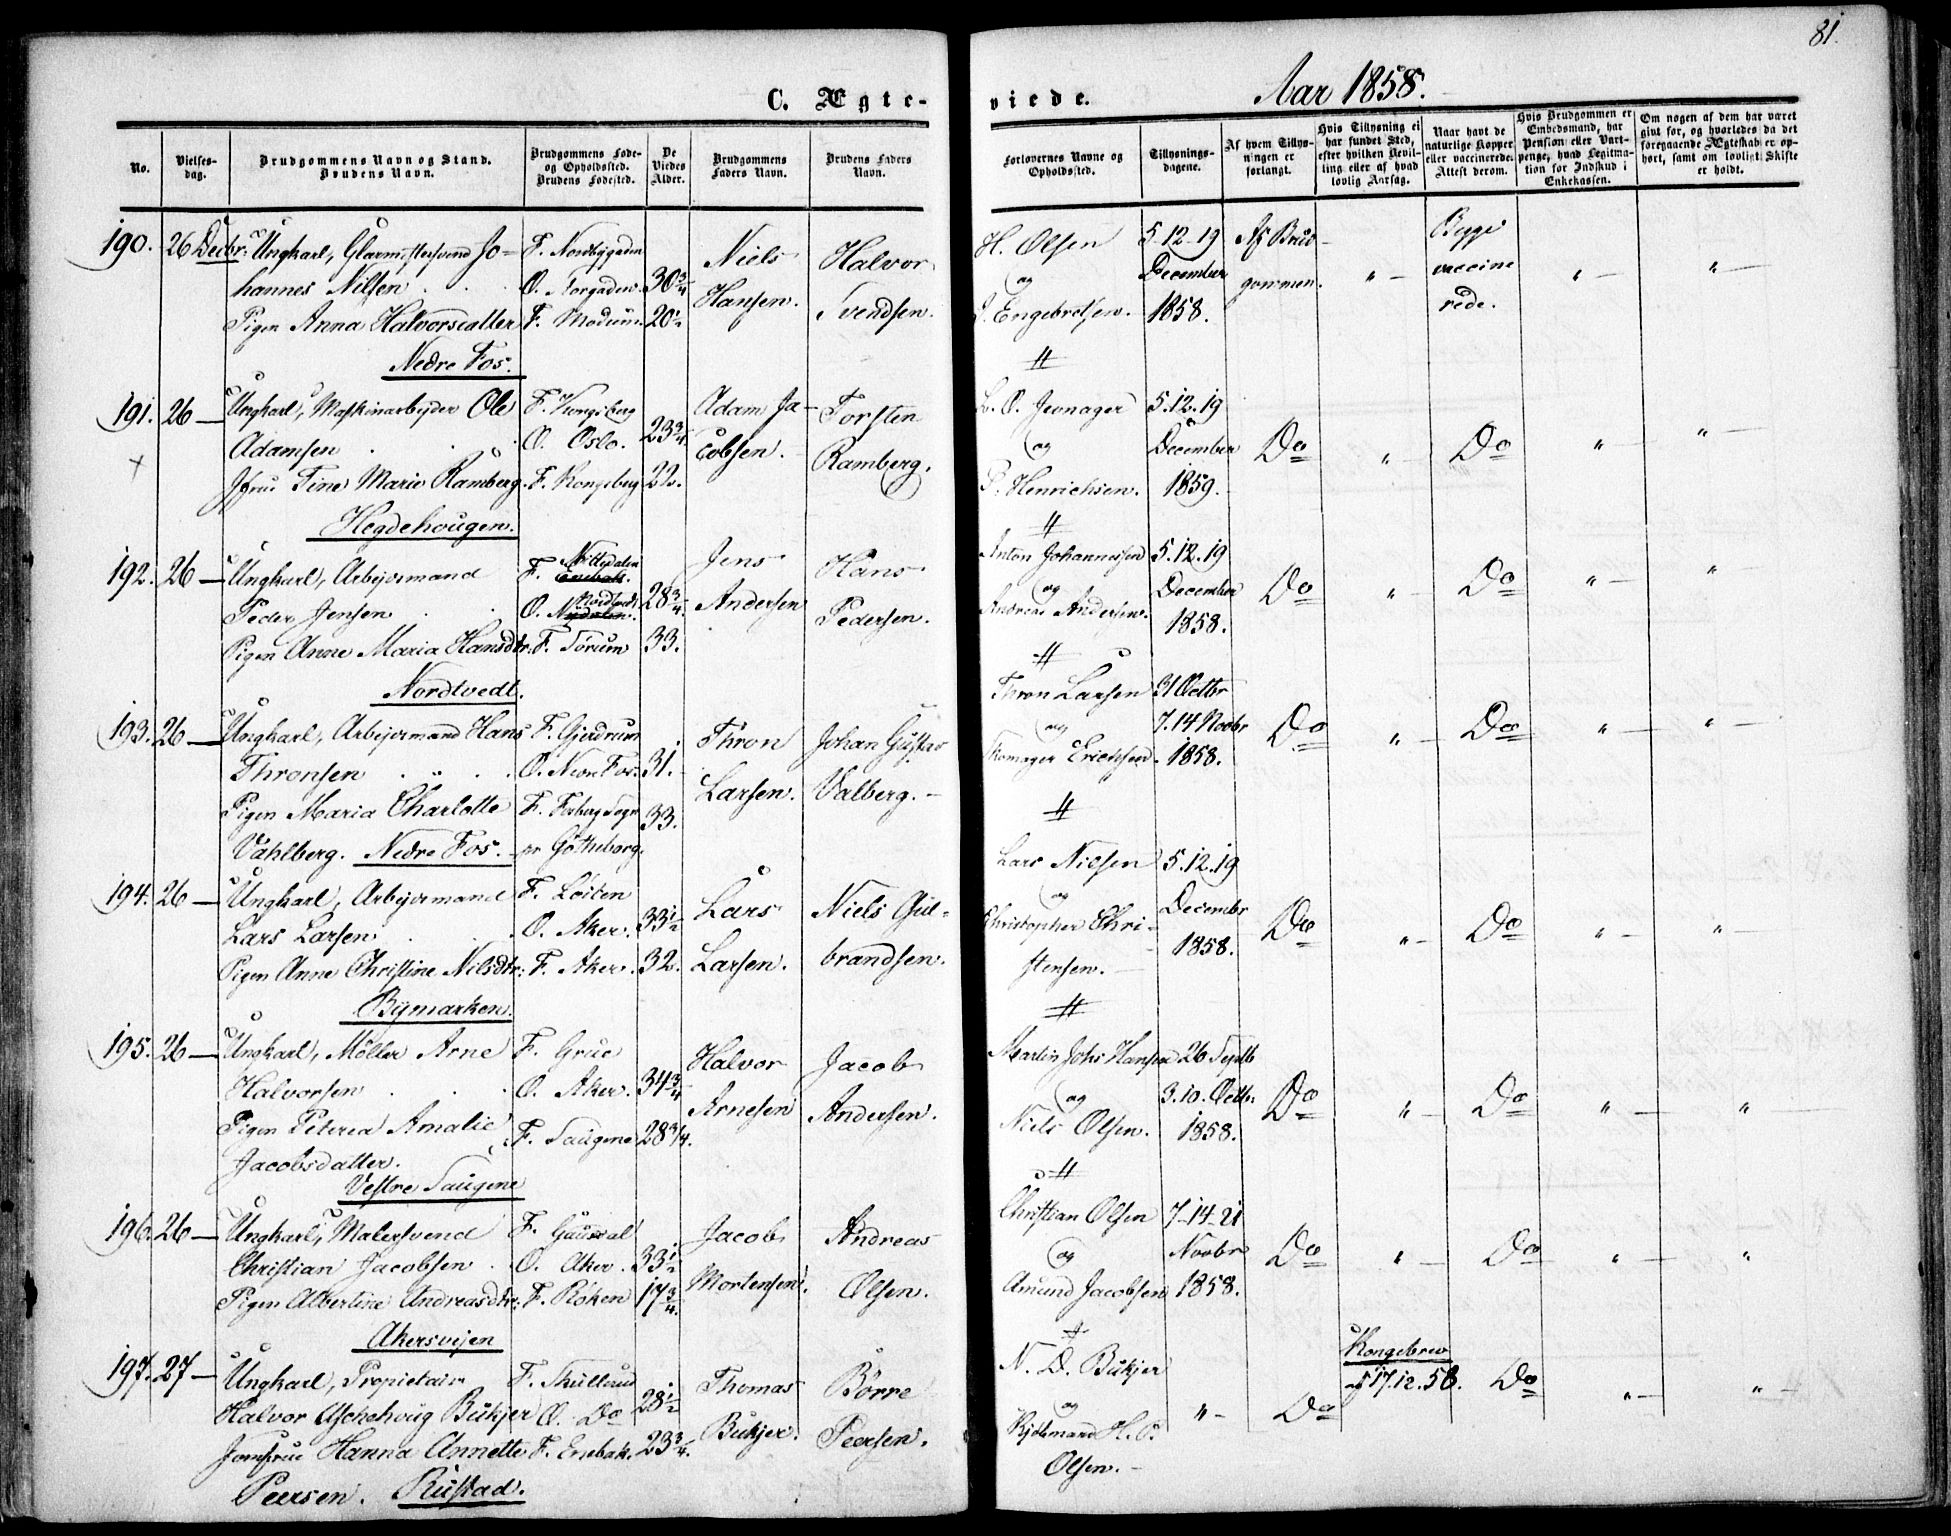 81.
C. Ægte-
viede.
Aar 1858.
No.
Vielses-
dag.
Brudgommens Navn og Stand.
Brudens Navn.
Brudgommens Føde-
og Opholdssted.
Brudens Fødested.
De
Viedes
Alder.
Brudgommens
Faders Navn.
Brudens Faders
Navn.
Forlovernes Navne og
Opholdssted.
Tillysnings-
dagene.
Af hvem Tillys-
ningen er
forlangt.
Hvis Tillysning ei
har fundet Sted,
efter hvilken Bevil-
ling eller af hvad
lovlig Aarsag.
Naar havt de
naturlige Kopper
eller vaccinerede.
Attest derom.
Hvis Brudgommen er
Embedsmand, har
Pension eller Vart-
penge, hvad Legitima-
tion for Indskud i
Enkekassen.
Om nogen af dem har været
givt før, og hvorledes da det
foregaaende Ægteskab er op-
hørt, samt om lovligt Skifte
er holdt.
190. 26 Decbr: Ungkarl, Glarmestersvend Jo-
hannes Nilsen
Pigen Anna Halvorsdatter
Nedre Fos.
F. Nordbygaden
O. Torgaden.
F. Modum.
30 3/4
20 1/2
Niels
Hansen.
Halvor
Svendsen.
H. Olsen
og
J. Engebretsen.
5-12-19
December
1858.
Af Brud-
gommen.
" -
Begge
vaccine
rede.
" -
" -
191. 26 - Ungkarl, Maskinarbeider Ole
Adamsen
Jfru Tine Marie Ramberg.
Hegdehougen.
F. Kongsberg
O. Oslo.
F. Kongsberg
23 3/4
22.
Adam Ja-
cobsen.
Torsten
Ramberg.
L. O. Jevnager
og
P. Henrichsen.
5.12.19
December
1859.
Do
" -
Do
" -
" -
192. 26 - Ungkarl, Arbeidsmand
Peder Jensen
Pigen Anne Maria Hansdtr:
Nordtvedt.
F. Nittedalen
Enebak.
O. Nordtvedt
Nydalen.
F. Sørum
28 3/4
33.
Jens
Andersen
Hans
Pedersen.
Anton Johannesen
og
Andreas Andersen.
5.12.19
December
1858.
Do
" -
Do
" -
"
193. 26 - Ungkarl, Arbeidsmand Hans
Thronsen
Pigen Maria Charlotte
Vahlberg. Nedre Fos.
F. Gjerdrum
O. Nedre Fos.
pr Götheborg.
31.
33.
Thron
Larsen.
Johan Gustav
Valberg.
Thron Larsen
og
Skomager Erichsen.
31 Octbr
7.14 Novbr
1858.
Do
" -
Do
" -
" -
194. 26 - Ungkarl, Arbeidsmand
Lars Larsen
Pigen Anne Christine Nilsdtr:
Bymarken.
F. Löiten
O. Aker.
F. Aker.
33 1/2
32.
Lars
Larsen.
Niels Gul-
brandsen.
Lars Nielsen
og
Christopher Chri-
stensen.
5.12.19
Decembr
1858.
Do
" -
Do
" -
"
195. 26 - Ungkarl, Möller Arne
Halvorsen
Pigen Peterea Amalie
Jacobsdatter.
Vestre Saugene
F. Grue
O. Aker.
F. Saugene
34 3/4
28 3/4.
Halvor
Arnesen
Jacob
Andersen.
Martin Johs Hansen
og
Niels Olsen.
26 Septb
3.10. Octbr
1858.
Do
" -
Do
" -
" -
196. 26 - Ungkarl, Malersvend
Christian Jacobsen
Pigen Albertine Andreasdtr:
Akersveien
F. Gausdal
O. Aker.
F. Röken
33 1/2
17 3/4.
Jacob
Mortensen.
Andreas
Olsen.
Christian Olsen
og
Amund Jacobsen
7-14-21
Novbr
1858.
Do
" -
Do
" -
"
197. 27 - Ungkarl, Propietair
Halvor Aschehoug Bukjer
Jomfrue Hanna Annette
Peersen. Rustad.
O. Do
F. Enebak.
28 1/2
23 3/4.
Thomas
Bukjer.
Börre
Peersen.
N. D. Bukjer
og
H. P.
Olsen.
" -
Do
Kongebrev
af 17.12.58.
Do
" -
" -